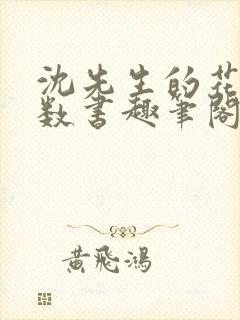 沈先生的花
数书趣笔阁
黄飛鴻